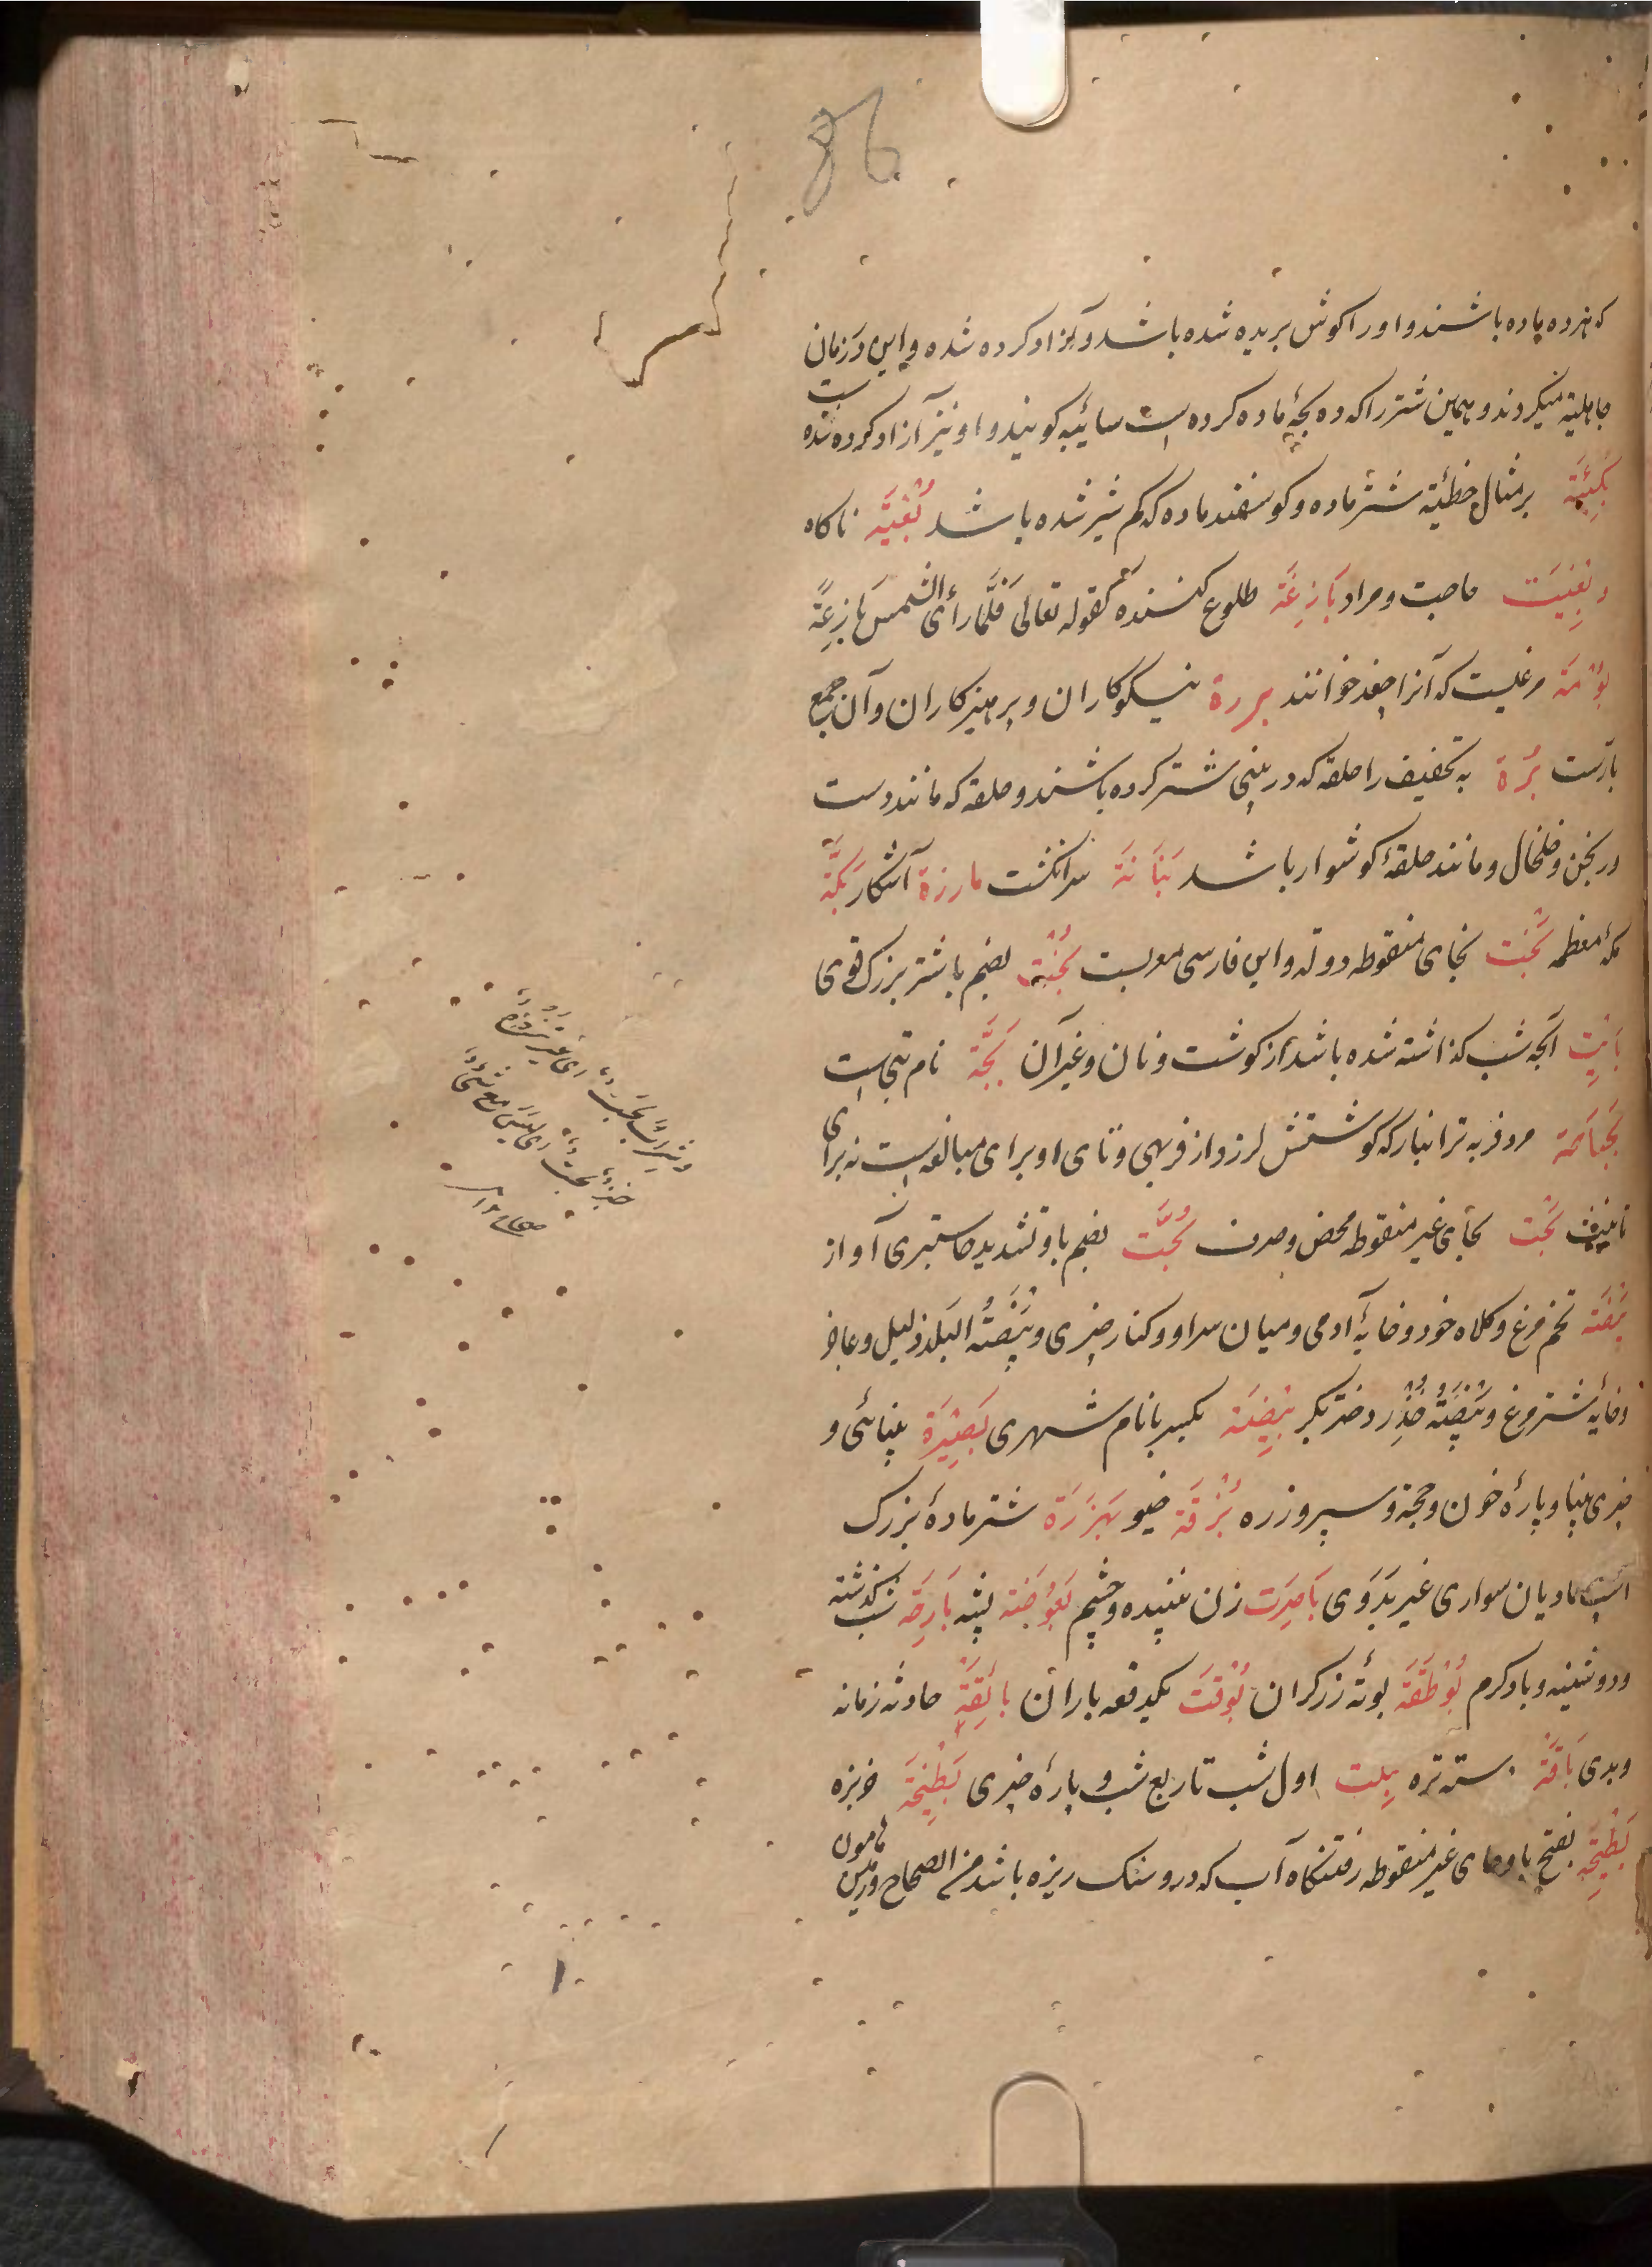 86
که هر ده ماده باشند و او را کوش بریده شده باشد و آزاد کرده شده و این در زمان
جاهلیة میکردند و همین شتر را که ده بچهٔ ماده کرده است سائبه کویند و او نیز آزاد کرده شده است
بَکِیْئَة بر مثال خطئیة شتر ماده و کوسفند ماده که کم شیر شده باشد بُغْیَّه ناکاه
و بُغِیَت حاجت و مراد بَازِغَة طلوع کننده کقوله تعالی فَلَمَّا رَأَی الشمسَ بَازِغَةً
بُوْمَة مرغیست که آنرا چغد خوانند بررة نیکوکاران و پرهیزکاران و آن جمع
بارّست بُرَة به تخفیف را حلقه که در بینی شتر کرده باشند و حلقه که مانند دست
ورنجن و خلخال و مانند حلقهٔ کوشوار باشد بَنَانَة سرانکشت بارزة آشکار بَکَّة
مکهٔ معظمه بَخْت بخای منقوطه دولة و این فارسی معربست بُخْت بضم با شتر بزرک قوی
بَائِت آنچه شب کذاشته شده باشد از کوشت و نان و غیر آن بَجَّة نام بتی است
بَجْبَاجَة مرد فربه تر انبار که کوشتش لرزد از فربهی و تای او برای مبالغه است نه برای
تانیث بَحْت بحای غیر منقوطه محض و صرف بُحَّت بضم با و تشدید حا ستبری آواز
بَیْضَه تخم مرغ و کلاه خود و خایهٔ آدمی و میان سرا و و کنار چیزی و بَیْضَةُ البَلد ذلیل و عاجز
و خایهٔ شتر مرغ و بَیْضَةُ خِدْر دختر بکر بِیْضَة بکسر با نام شهری بَصِیْرَة بینائی و
چیزی بینا و پارهٔ خون و حجة و سپر و زره بُزْقَة خیو بَهْزَرَة شتر مادهٔ بزرک
اسب مادیان سواری غیر بَدَوی بَاصِرَت زن بیننده و چشم بَعُوضَة پشه بَارِحَه شب کذشته
و دوشینه و باد کرم بُوْطَقَة بوتهٔ زرکران بُوْقَت یکدفعه باران بَائِقَة حادثه زمانه
و بدی بَاقَة دسته تره بِلت اول شب تا ربع شب و پارهٔ چیزی بَطِیْخَة خربزه
بَطْیِحَه بفتح با و حای غیر منقوطه رفتنکاه آب که در و سنک ریزه باشد من الصحاح و زمین هامون
و شَرابٌ بَحْتٌ ای غیر ممزوج
خبزٌ بحتٌ ای لَیْسَ مَعَهُ شَیْءٌ
صحاح